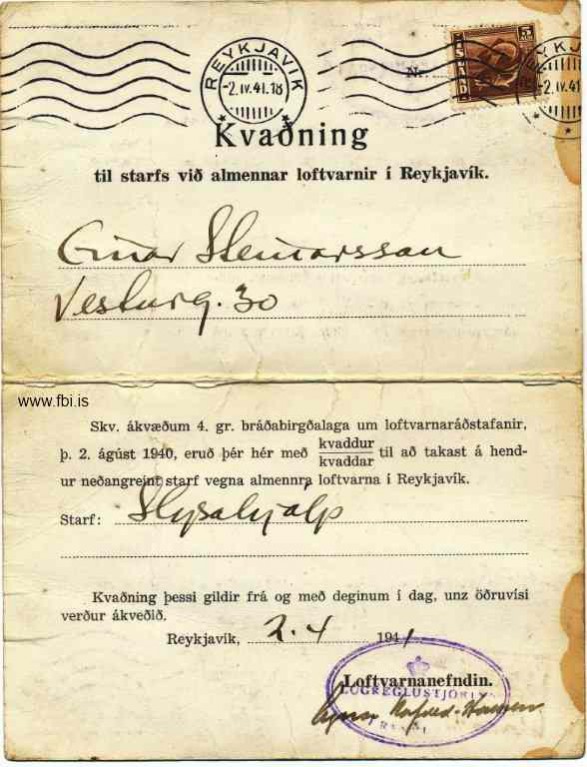 REYKJAVÍK
-2.IV.41.18
Nr.
5
Kvaðning
til starfs við almennar loftvarnir í Reykjavík.
Einar Steinarsson
Vesturg. 30
www.fbi.is
Skv. ákvæðum 4. gr. bráðabirgðalaga um loftvarnaráðstafanir,
þ. 2. ágúst 1940, eruð þér hér með kvaddur
kvaddar til að takast á hend-
ur neðangreint starf vegna almennra loftvarna í Reykjavík.
Starf: Slysahjálp
Kvaðning þessi gildir frá og með deginum í dag, unz öðruvísi
verður ákveðið.
Reykjavík, 2.4 1941
Loftvarnanefndin.
LÖGREGLUSTJÓRINN
Agnar Kofoed-Hansen